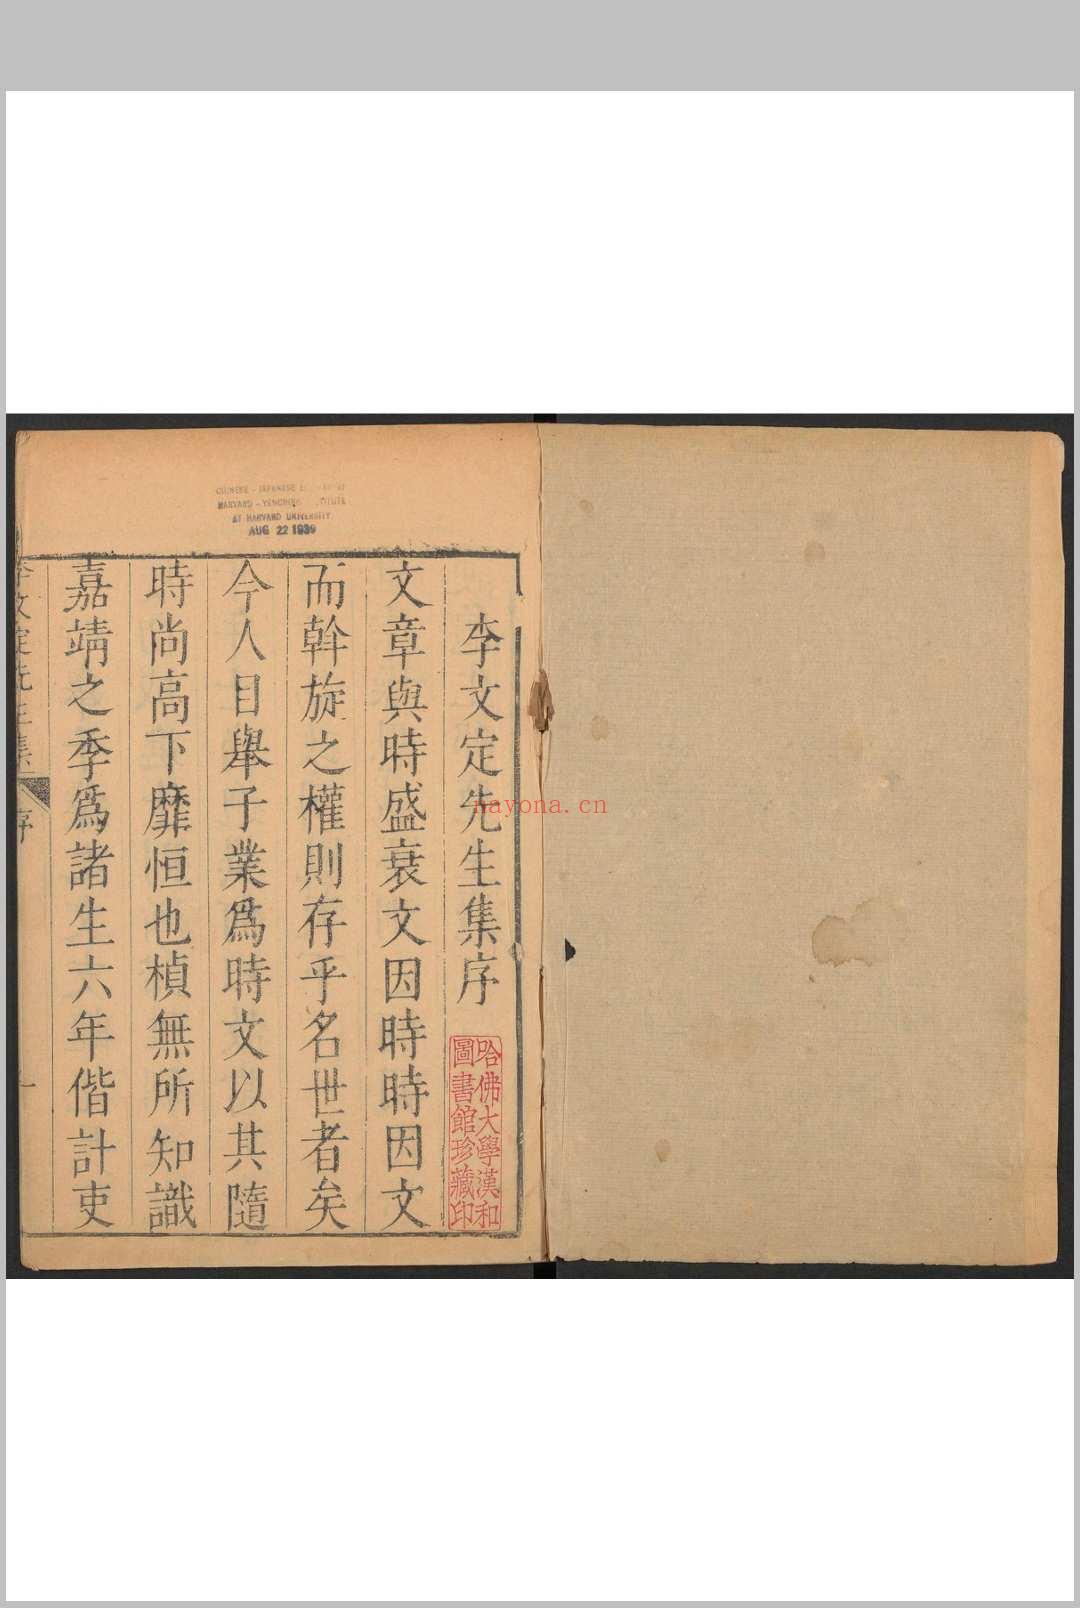 李文定先生集序
文章與時盛衰文因時時因文
而斡旋之權則存乎名世者矣
今人目舉子業爲時文以其隨
時尚高下靡恒也楨無所知識
嘉靖之季爲諸生六年偕計吏
李文定先生集
序
一
哈佛大學漢和
圖書館珍藏印
CHINESE - JAPANESE
HARVARD - YENCHING
AT HARVARD UNIVERSITY
AUG 22 1939
nayona.cn